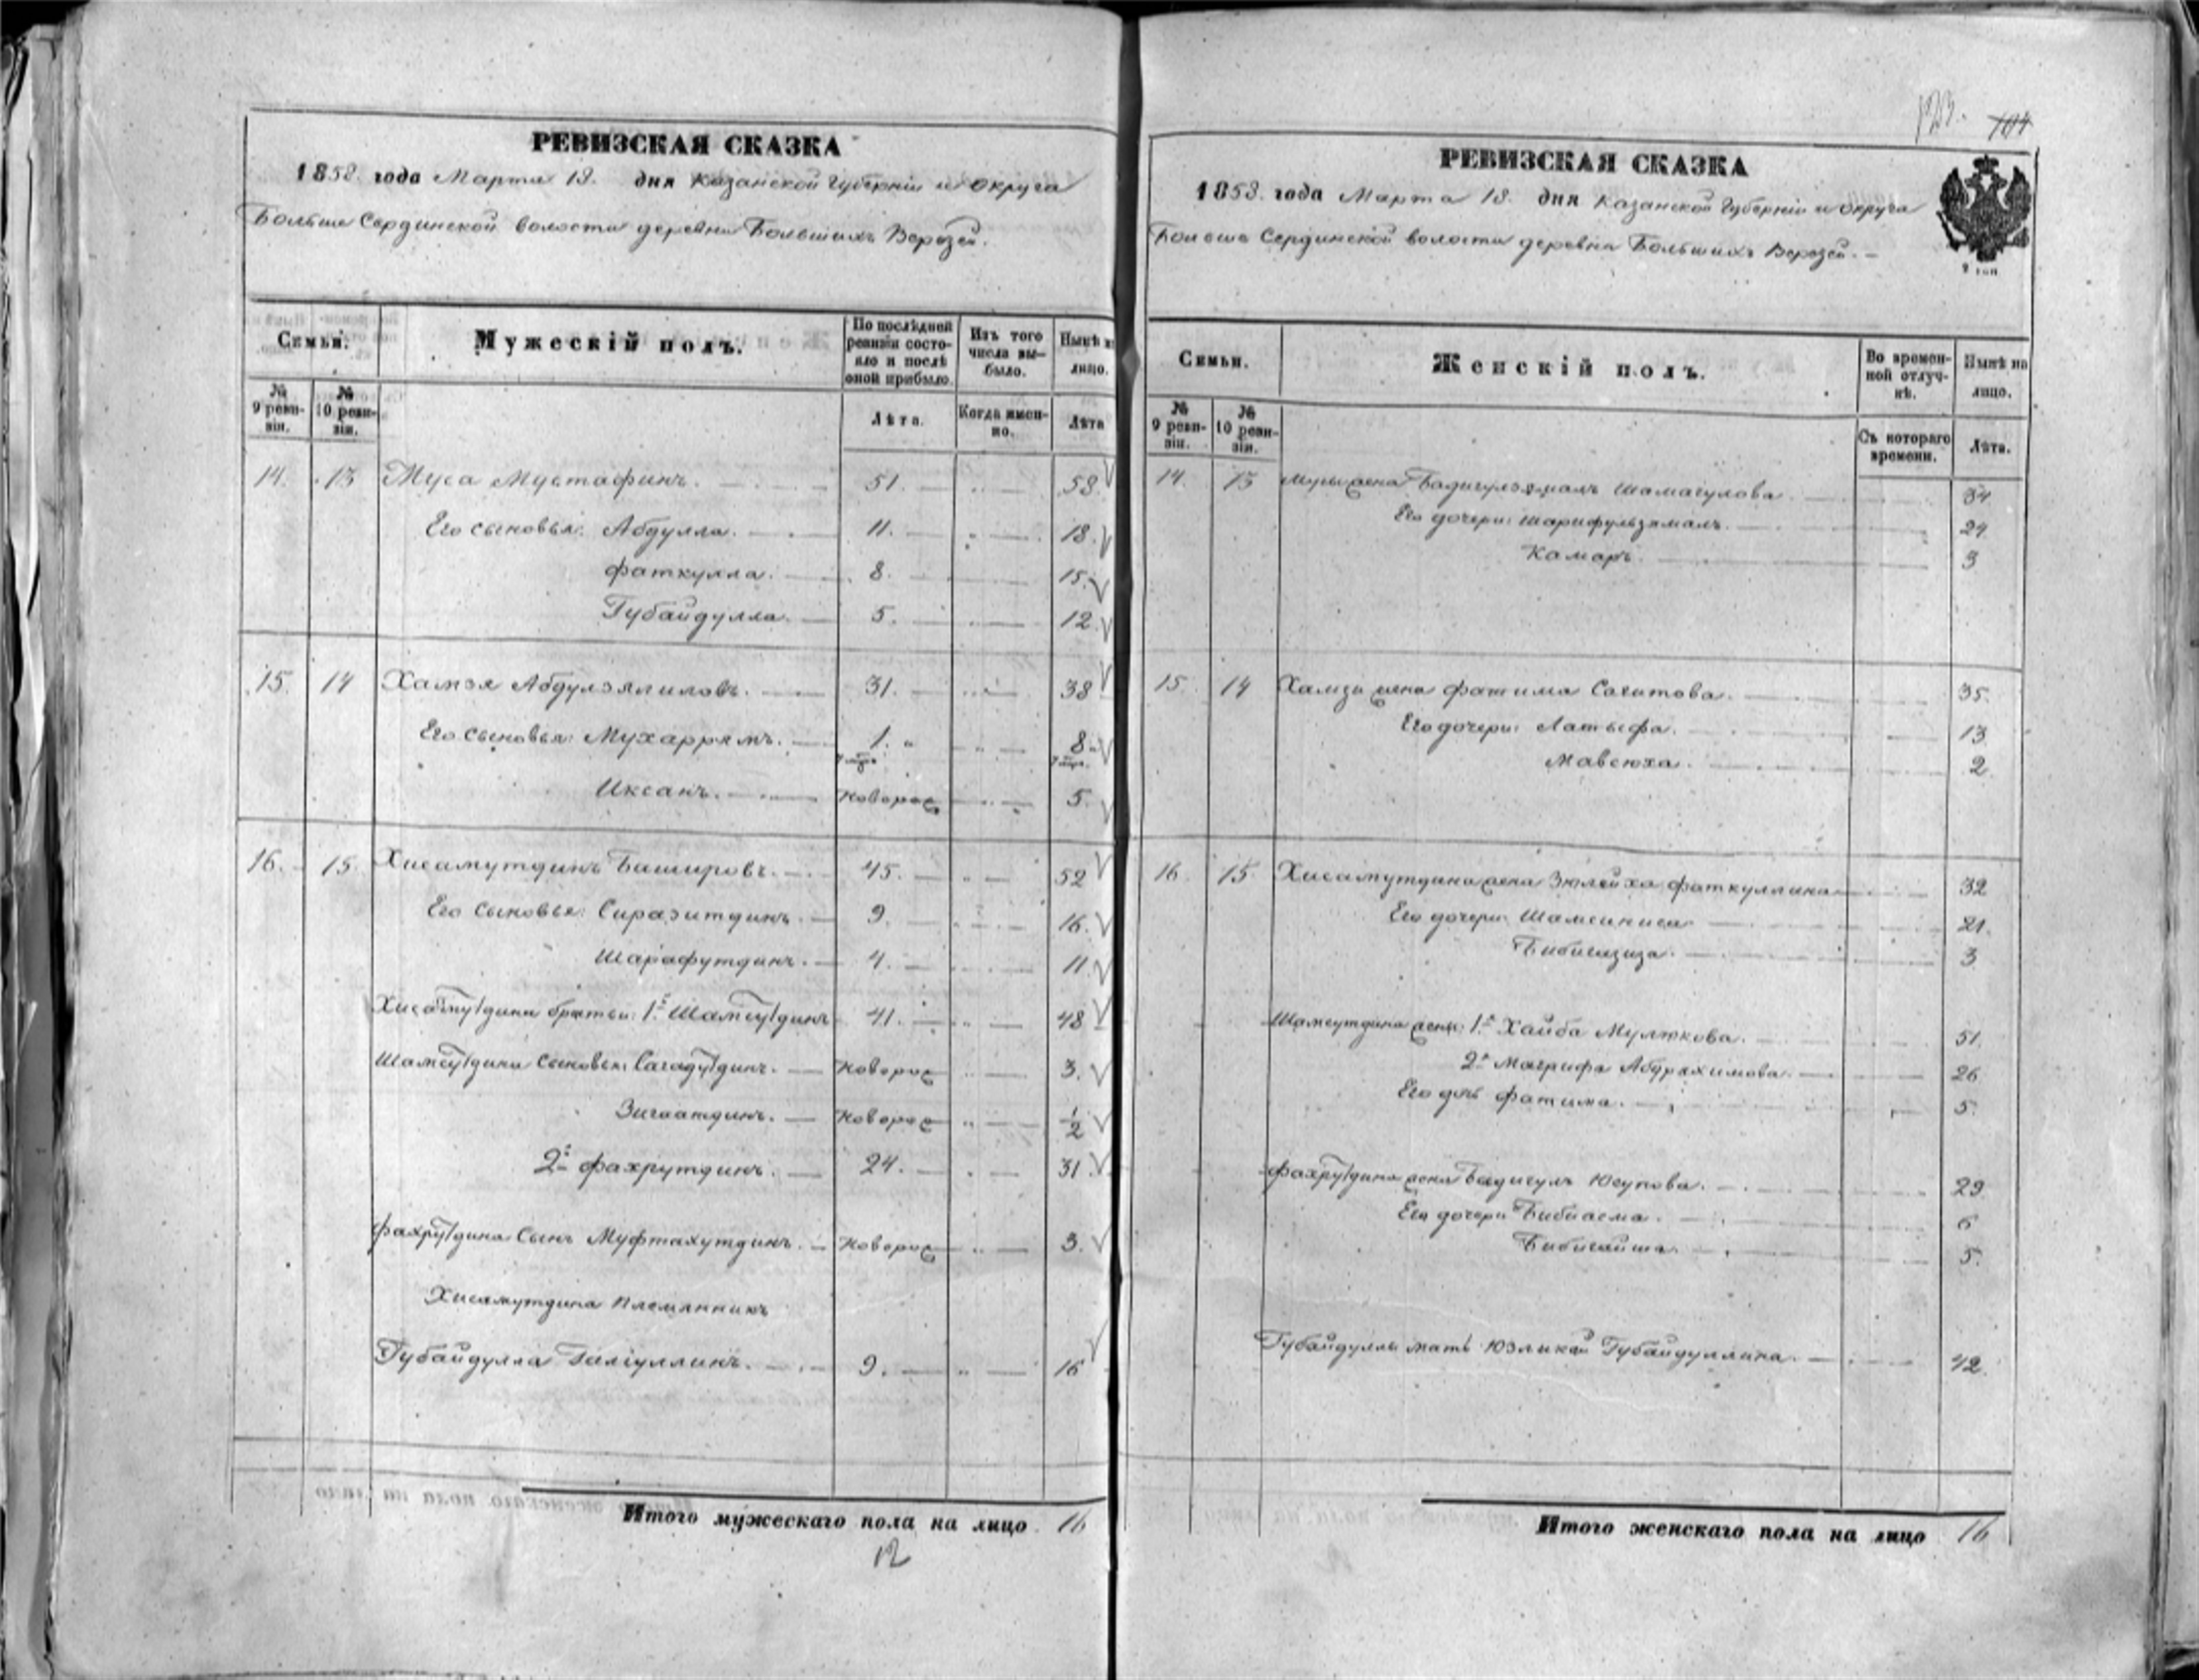 РЕВИЗСКАЯ СКАЗКА
1858. года Марта 18. дня Казанской Губерніи и Округа
Больше Сердинской волости деревни Большихъ Верезей.
Семьи.
Мужескій полъ.
По послѣдней ревизіи состояло и послѣ оной прибыло.
Изъ того числа выбыло.
Нынѣ на лицо.
№ 9 ревизіи.
№ 10 ревизіи.
Лѣта.
Когда именно.
Лѣта
14. 13 Муса Мустафинъ. 51. 58.
Его сыновья: Абдулла. 11. 18.
Фаткулла. 8. 15.
Губайдулла. 5. 12.
15. 14 Хамзя Абдулзялиловъ. 31. 38
Его сыновья: Мухаррямъ. 1. 8.
Иксанъ. новорож 5.
16. 15. Хисамутдинъ Башировъ. 45. 52
Его сыновья: Сиразитдинъ. 9. 16.
Шарафутдинъ. 4. 11.
Хисамутдина братья: 1й Шамсутдинъ 41. 48
Шамсутдина сыновья: Сагадутдинъ. новорож 3.
Зигаатдинъ. новорож 1/2
2й Фахрутдинъ. 24. 31.
Фахрутдина сынъ Муфтахутдинъ. новорож 3.
Хисамутдина племянникъ
Губайдулла Галіуллинъ. 9. 16
Итого мужескаго пола на лицо 16
12
123. 104
РЕВИЗСКАЯ СКАЗКА
1858. года Марта 18. дня Казанской Губерніи и Округа
Больше Сердинской волости деревни Большихъ Верезей.
Семьи.
Женскій полъ.
Во временной отлучкѣ.
Нынѣ на лицо.
№ 9 ревизіи.
№ 10 ревизіи.
Съ котораго времени.
Лѣта.
14. 13 Мусы жена Бадигулзямалъ Шамагулова. 34.
Его дочери: Шарифульзямалъ. 24
Камаръ. 3
15. 14 Хамзи жена Фатима Сагитова. 35.
Его дочери: Латыфа. 13
Мавсюха. 2.
16. 15 Хисамутдина жена Зюлейха Фаткуллина 32
Его дочери: Шамсиниса 21.
Бибигазиза. 3
Шамсутдина жены: 1я Хайба Мулюкова. 51.
2я Магрифа Абдрахимова. 26
Его дочь Фатима. 5.
Фахрутдина жена Бадигулъ Юсупова. 29
Его дочери Бибиасма. 6
Бибигайша. 5.
Губайдуллы мать Юзликай Губайдуллина. 42.
Итого женскаго пола на лицо 16